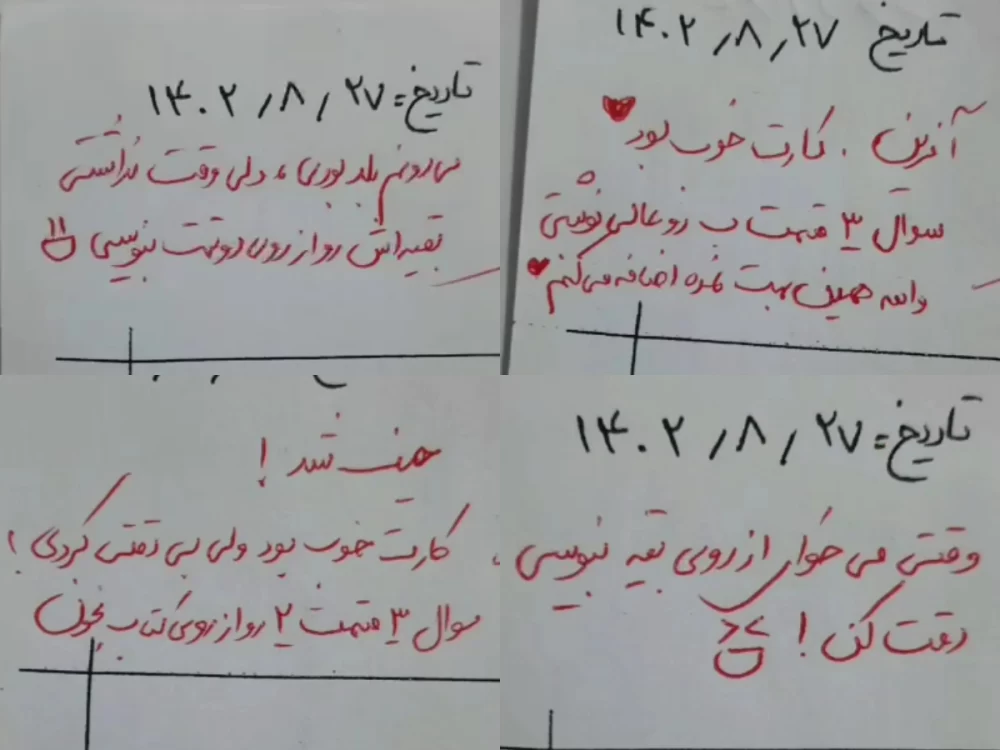 تاریخ = ۱۴۰۲/۸/۲۷
می‌دونم بلد بودی، ولی وقت نداشتی
بقیه‌اش رو از روی دوستت بنویسی
تاریخ ۱۴۰۲/۸/۲۷
آفرین . کارت خوب بود
سوال ۳ قسمت ب رو عالی نوشتی
واسه همین بهت نمره اضافه می‌کنم
حیف شد !
کارت خوب بود ولی بی دقتی کردی !
سوال ۳ قسمت ۲ رو از روی کتاب بخون
تاریخ = ۱۴۰۲/۸/۲۷
وقتی می خوای از روی بقیه بنویسی
دقت کن !